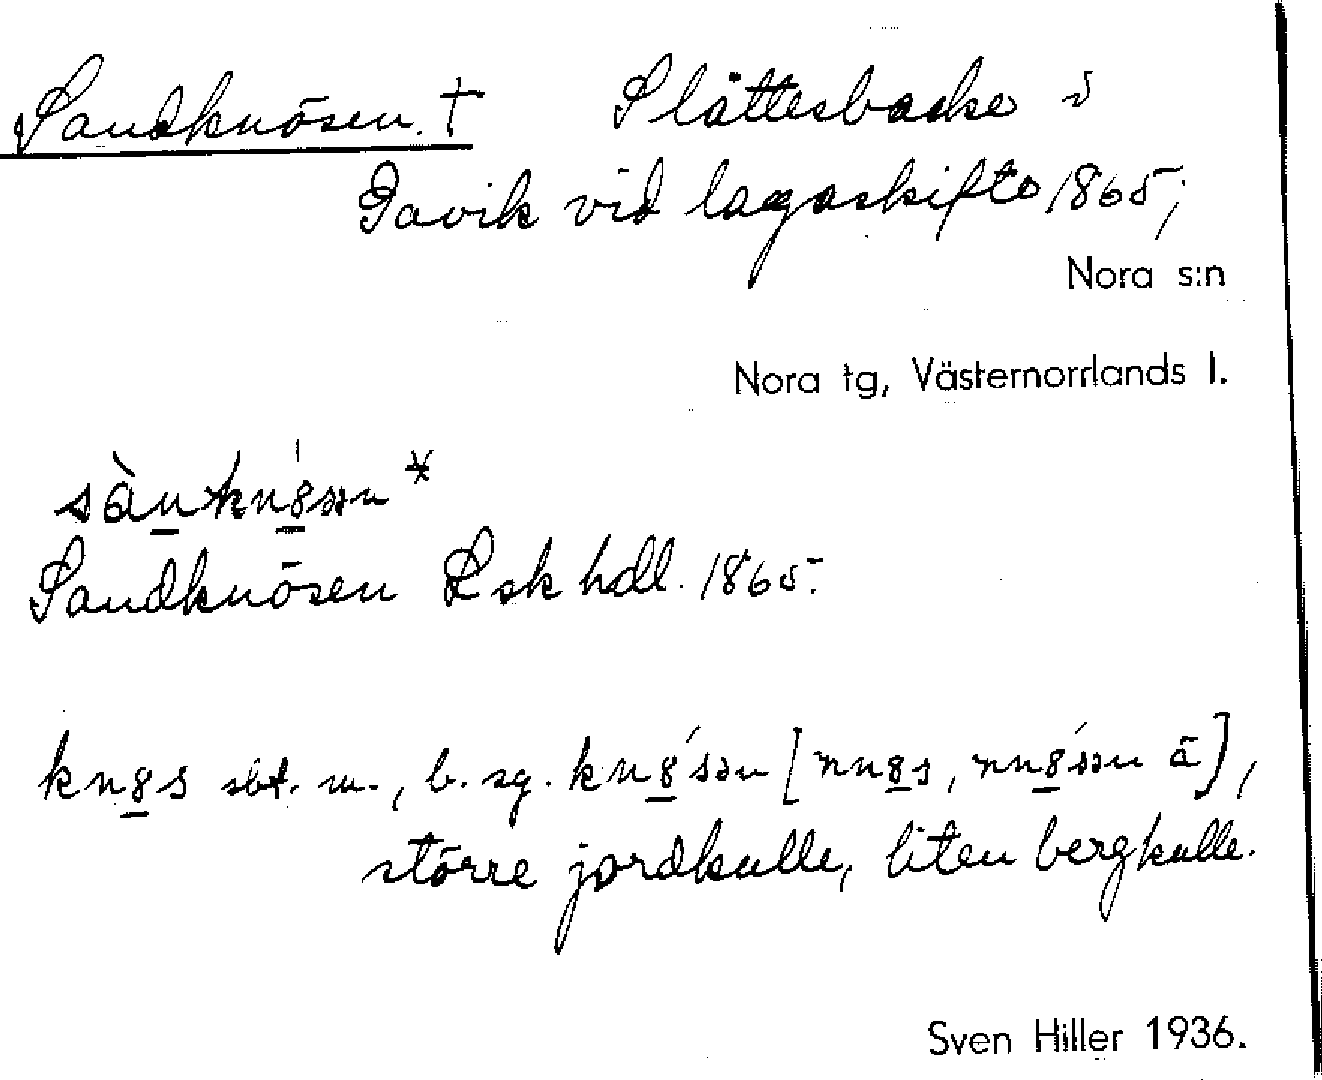 Sandknösen. † Slåttesbacke i
Gavik vid lagaskifte 1865;
Nora s:n
Nora tg, Västernorrlands l.
Sandknösen Lsk hdl. 1865.
sbt. m., b. sg.
större jordkulle, liten bergkulle.
Sven Hiller 1936.